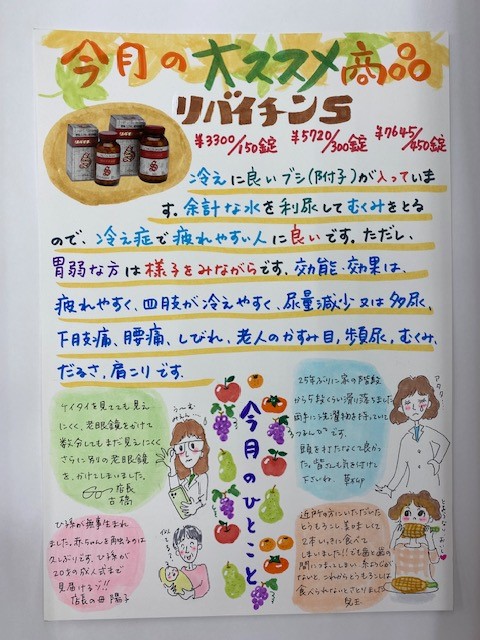 今月のオススメ商品
リバイチンS
¥3300/150錠 ¥5720/300錠 ¥7645/450錠
冷えに良いブシ(附子)が入っていま
す。余計な水を利尿してむくみをとる
ので、冷え症で疲れやすい人に良いです。ただし、
胃弱な方は様子をみながらです。効能・効果は、
疲れやすく、四肢が冷えやすく、尿量減少又は多尿、
下肢痛、腰痛、しびれ、老人のかすみ目、頻尿、むくみ、
だるさ、肩こりです。
ケイタイを見てても見え
にくく、老眼鏡をかけて
数分してもまだ見えにくく
さらに別の老眼鏡
を、かけてしまいました。
店長
古橋
う〜む
今月のひとこと
25年ぶりに家の階段
から5段くらい滑り落ちました
両手に洗濯物を持っていて
頭を打たなくて良かっ
た。皆さんも気を付けて
下さいね。
アタタ
ひ孫が無事生まれ
ました。赤ちゃんを触るのは
久しぶりです。ひ孫が
20才の成人式まで
見届けるゾ!!
店長の母 陽子
近所の方にいただいた
とうもろこし美味しくて
2本いっきに食べて
しまいました!!でも歯と歯の
間につまってしまい、糸ようじが
ないと、これからとうもろこしは
食べられないとさとりました
児玉